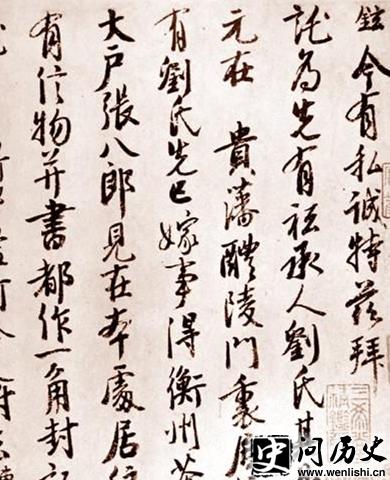 鉉今有私誠特茲拜
託為先有祗承人劉氏其
元在 貴藩醴陵門裏
有劉氏先已嫁事得衡州茶
大戶張八郎見在本處居住
有信物并書都作一角封記
问历史
www.wenlishi.cn